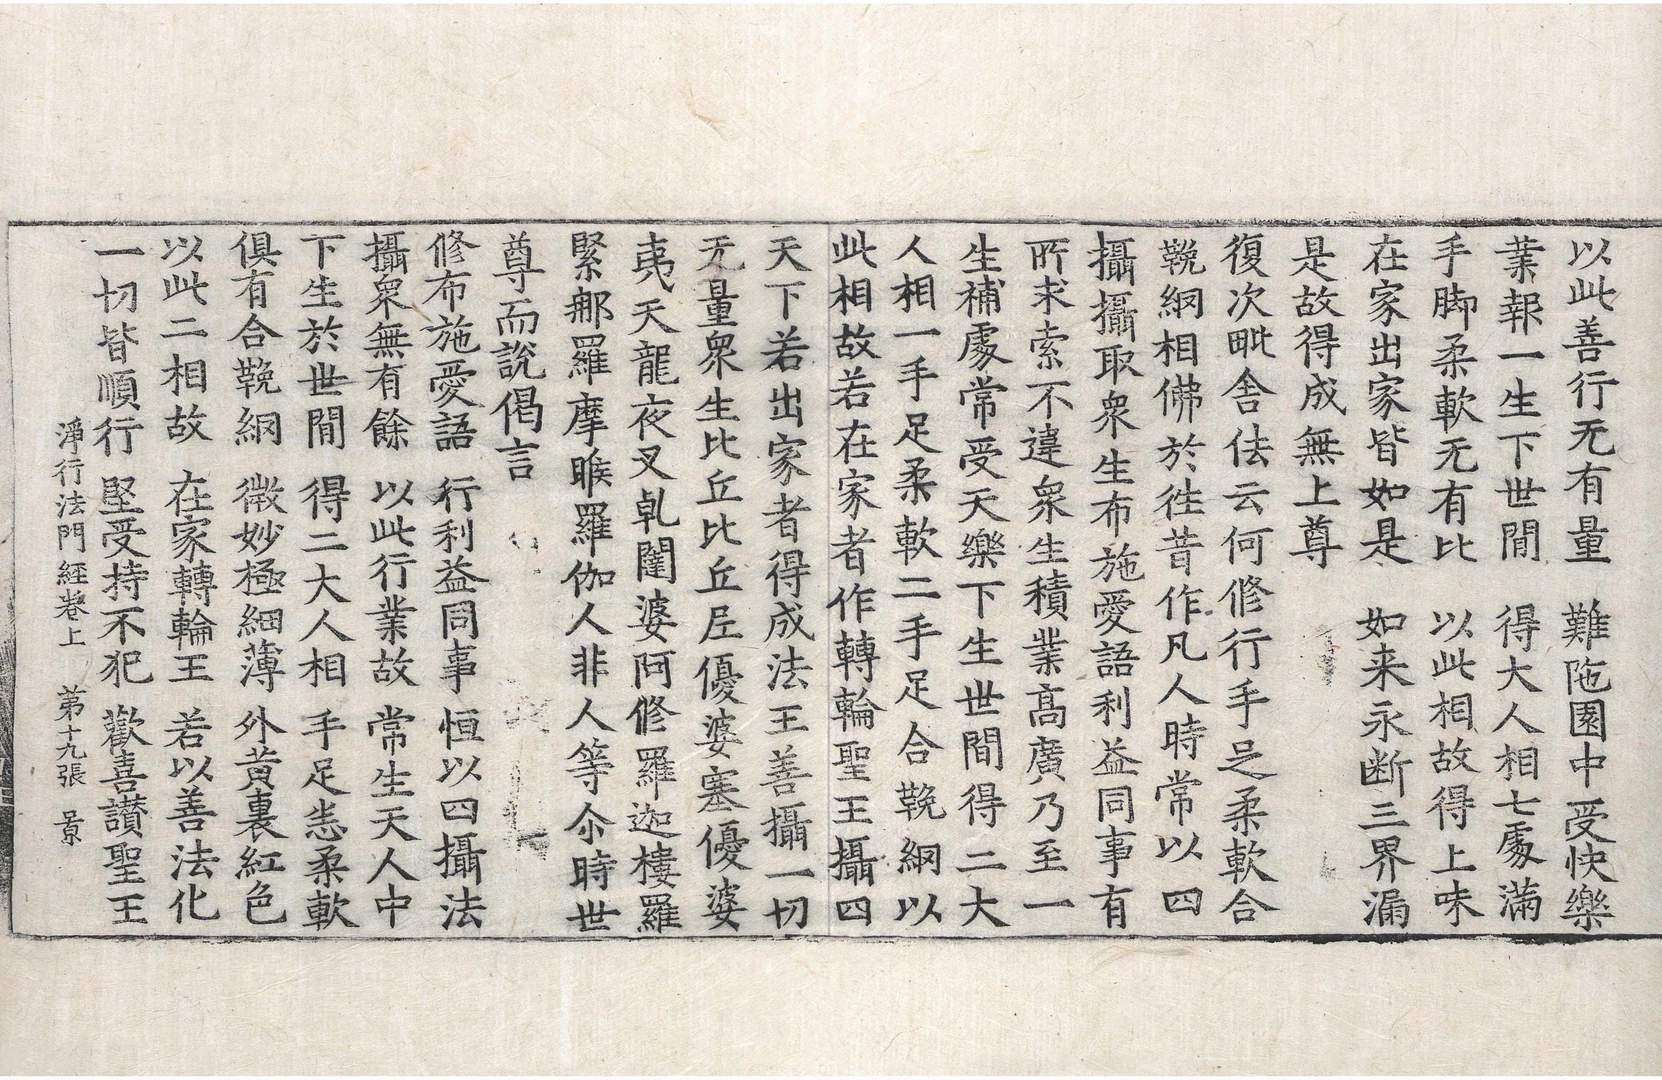 以此善行无有量　難陁園中受快樂
業報一生下世間　得大人相七處滿
手脚柔軟无有比　以此相故得上味
在家出家皆如是　如来永断三界漏
是故得成無上尊
復次毗舍佉云何修行手足柔軟合
鞔網相佛於往昔作凡人時常以四
攝攝取衆生布施愛語利益同事有
所求索不違衆生積業髙廣乃至一
生補處常受天樂下生世間得二大
人相一手足柔軟二手足合鞔網以
此相故若在家者作轉輪聖王攝四
天下若出家者得成法王善攝一切
无量衆生比丘比丘尼優婆塞優婆
夷天龍夜叉乹闥婆阿修羅迦樓羅
緊那羅摩睺羅伽人非人等尒時世
尊而說偈言
修布施愛語　行利益同事　恒以四攝法
攝衆無有餘　以此行業故　常生天人中
下生於世間　得二大人相　手足恚柔軟
俱有合鞔網　微妙極細薄　外黄裏紅色
以此二相故　在家轉輪王　若以善法化
一切皆順行　堅受持不犯　歡喜讃聖王
淨行法門經卷上　第十九張　景